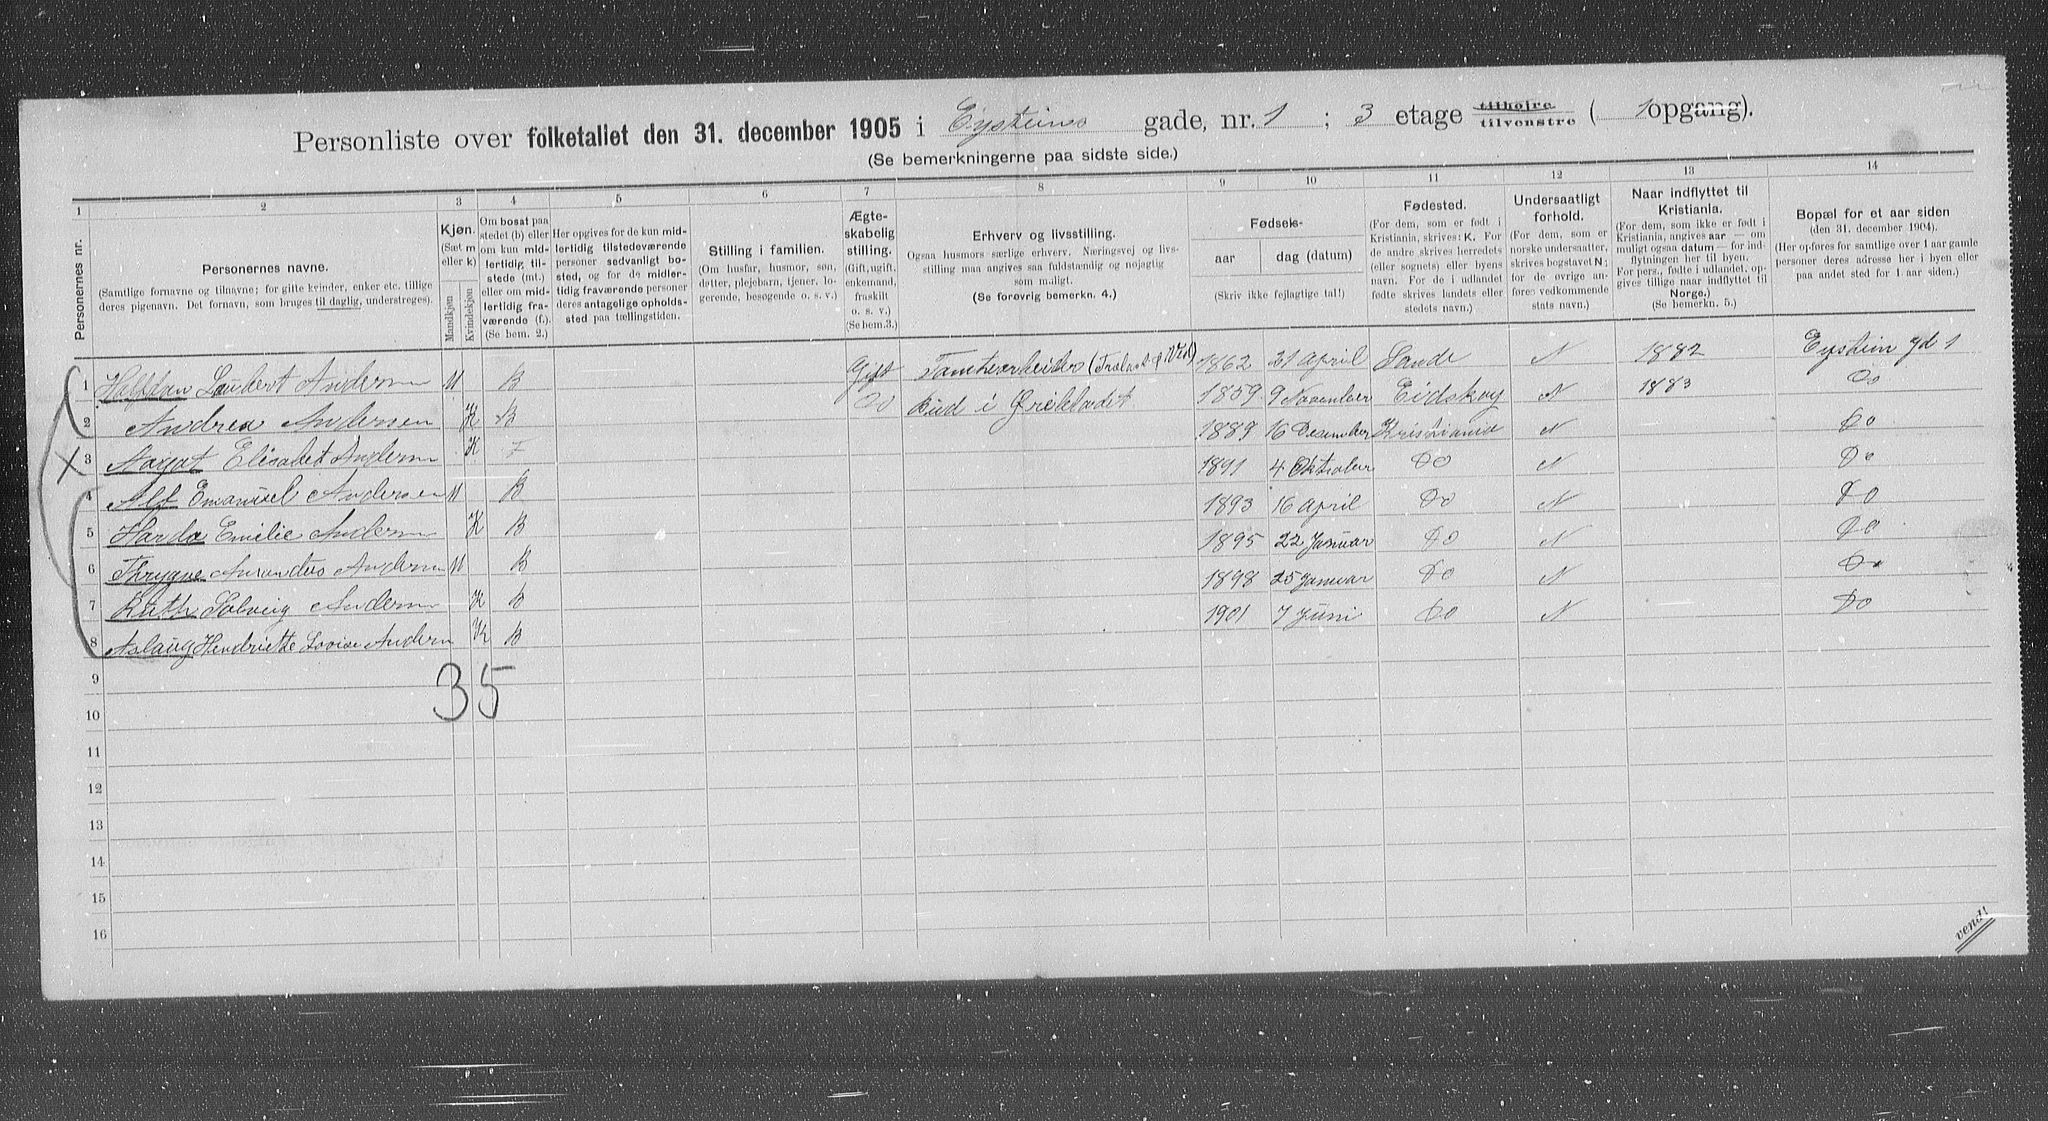 Personliste over folketallet den 31. december 1905 i Eysteins gade, nr. 1 ; 3 etage tilhøjre tilvenstre ( 1 opgang).
(Se bemerkningerne paa sidste side.)
1 2 3 4 5 6 7 8 9 10 11 12 13 14
Personernes nr.
Personernes navne.
(Samtlige fornavne og tilnavne; for gifte kvinder, enker etc. tillige deres pigenavn. Det fornavn, som bruges til daglig, understreges).
Kjøn.
(Sæt m eller k)
Mandkjøn Kvindekjøn
Om bosat paa stedet (b) eller om kun midlertidig tilstede (mt.) eller om midlertidig fraværende (f.). (Se bem. 2.)
Her opgives for de kun midlertidig tilstedeværende personer sedvanligt bosted, og for de midlertidig fraværende personer deres antagelige opholdssted paa tællingstiden.
Stilling i familien.
(Om husfar, husmor, søn, datter, plejebarn, tjener, logerende, besøgende o. s. v.)
Ægteskabelig stilling.
(Gift, ugift, enkemand, fraskilt o. s. v.) (Se bem.3.)
Erhverv og livsstilling.
Ogsaa husmors særlige erhverv. Næringsvej og livsstilling maa angives saa fuldstændig og nøjagtig som muligt.
(Se forøvrig bemerkn. 4.)
Fødsels-
aar dag (datum)
(Skriv ikke fejlagtige tal!)
Fødested.
(For dem, som er født i Kristiania, skrives: K. For de andre skrives herredets (eller sognets) eller byens navn. For de i udlandet fødte skrives landets eller stedets navn.)
Undersaatligt forhold.
(For dem, som er norske undersaatter, skrives bogstavet N; for de øvrige anføres vedkommende stats navn.)
Naar indflyttet til Kristiania.
(For dem, som ikke er født i Kristiania, angives aar — om muligt ogsaa datum — for indflytningen her til byen. For pers., fødte i udlandet, opgives tillige naar indflyttet til Norge.)
(Se bemerkn. 5.)
Bopæl for et aar siden
(den 31. december 1904).
(Her opføres for samtlige over 1 aar gamle personer deres adresse her i byen eller paa andet sted for 1 aar siden.)
1 Halfdan Andersen M B Gift 1862 21 April Sande N 1882 Eystein gd 1
2 Andrea Andersen K B Do Bud i 1859 9 November Eidskog N 1883 Do
3 Elisabet Andersen K F 1889 16 Desember Kristiania N Do
4 Alf Emanuel Andersen M B 1891 4 Oktober Do N Do
5 Emilie Andersen K B 1893 16 April Do N Do
6 Andersen M B 1895 22 Januar Do N Do
7 Ruth Solveig Andersen K B 1898 25 Januar Do N Do
8 Aslaug Henriette Lovise Andersen K B 1901 7 Juni Do N Do
9
35
10
11
12
13
14
15
16
vend!